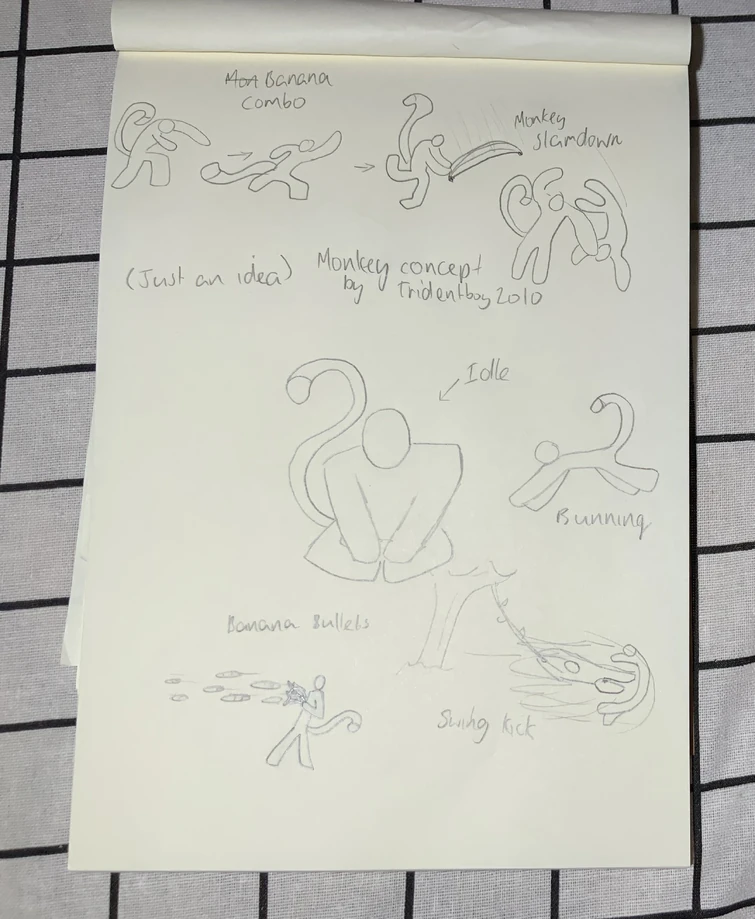 Mon Banana
Combo
Monkey
Slamdown
(Just an idea)
Monkey concept
by Tridentboy2010
Idle
Running
Banana Bullets
Swing Kick